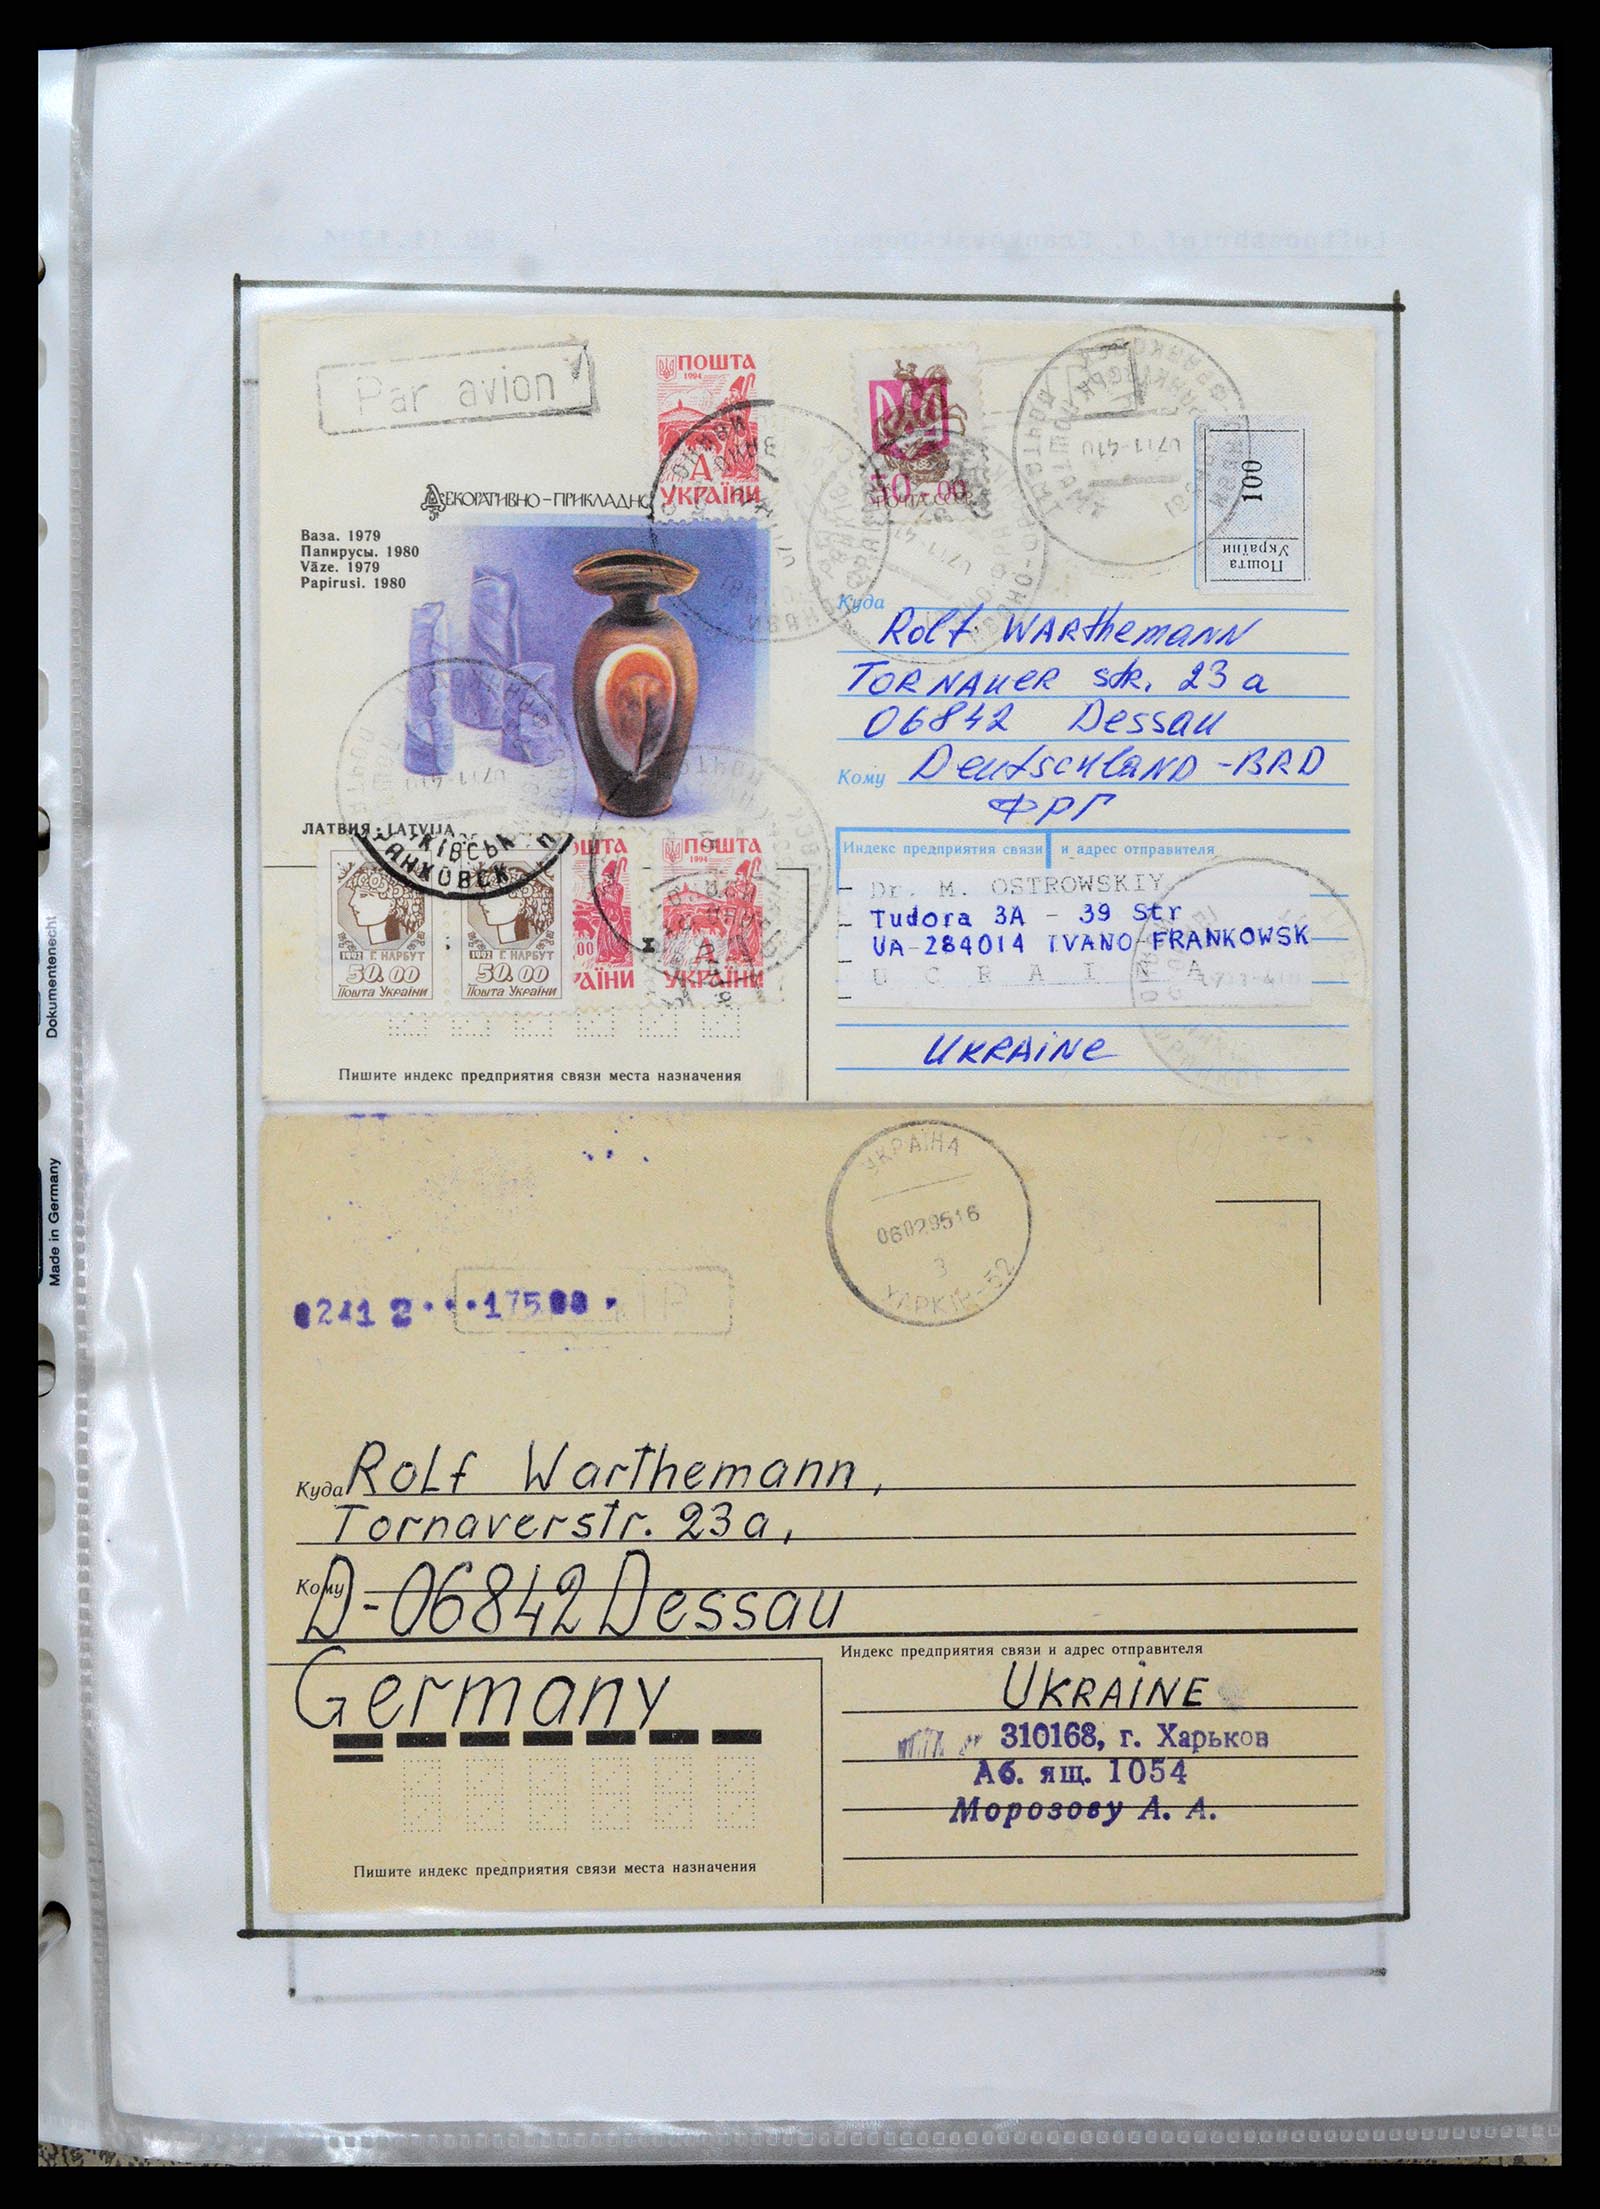 Par avion
ПОШТА
1994
А
УКРАЇНИ
100
Пошта
України
ДЕКОРАТИВНО-ПРИКЛАДНО
Ваза. 1979
Папирусы. 1980
Vāze. 1979
Papirusi. 1980
Куда
Rolf WARthemANN
TORNAUER str. 23 a
06842 Dessau
Кому DeutschlAND-BRD
ФРГ
ЛАТВИЯ · LATVIJA
КІВСЬК
РАНКОВСК
ПОШТА
1994
А
УКРАЇНИ
1992 Г. НАРБУТ
50.00
Пошта України
1992 Г. НАРБУТ
50.00
Пошта України
Индекс предприятия связи и адрес отправителя
Dr. M. OSTROWSKIY
Tudora 3A - 39 Str
UA-284014 IVANO-FRANKOWSK
U C R A I N A
UKRAiNe
Пишите индекс предприятия связи места назначения
УКРАЇНА
06029516
З
ХАРКІВ-52
Куда Rolf Warthemann,
Tornaverstr. 23a,
Кому
D-06842 Dessau
Germany
Индекс предприятия связи и адрес отправителя
UKRAiNE
310168, г. Харьков
Аб. ящ. 1054
Морозову А. А.
Пишите индекс предприятия связи места назначения
Dokumentenecht
Made in Germany